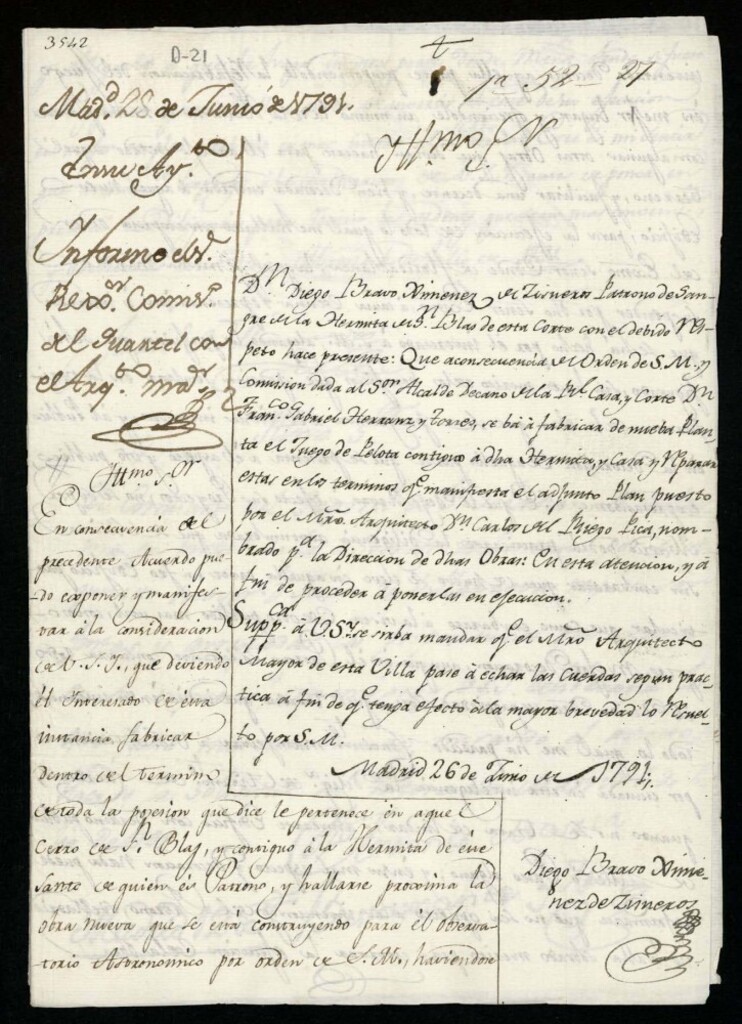 3542
D-21
1ª 52-27
Mad.d 28 de Junio de 1791.
Yll.mo S.r
En su Ay.to
Informe el S.r
Rex.or Comis.o
del Quartel con
el Arq.to m.or
D.n Diego Bravo Ximenez de Zisneros Patrono de San-
gre de la Hermita de S.n Blas de esta Corte con el debido Res-
peto hace presente: Que aconsecuencia de Orden de S.M. y
Comision dada al S.or Alcalde Decano de la R.l Casa, y Corte D.n
Fran.co Gabriel Herranz y Torres, se bá á fabricar de nueba Plan-
ta el Juego de Pelota contiguo á dha Hermita, y Casa y Reparar
estas en los terminos q.e manifiesta el adjunto Plan puesto
por el Mro. Arquitecto D.n Carlos del Riego Pica, nom-
brado p.a la Direccion de dhas Obras: En esta atencion, y á
fin de proceder á ponerlas en ejecucion.
Supp.ca á V.S.Y. se sirba mandar q.e el Mro Arquitecto
Mayor de esta Villa pase á echar las Cuerdas segun prac-
tica á fin de q.e tenga efecto á la mayor brevedad lo Resuel-
to por S.M.
Madrid 26 de Junio de 1791.
Diego Bravo Xime-
nez de Zisneros
Yllmo S.or
En consecuencia del
precedente Acuerdo pue-
do exponer y manifes-
tar á la consideracion
de V.S.I., que deviendo
él Interesado de esta
instancia fabricar
dentro del termino
de toda la posesion que dice le pertenece en aquel
Cerro de S.n Blas, y contiguo á la Hermita de este
Santo de quien és Patrono, y hallarse proxima la
obra nueva que se está construyendo para él observa-
torio Astronomico por orden de S.M., haviendose